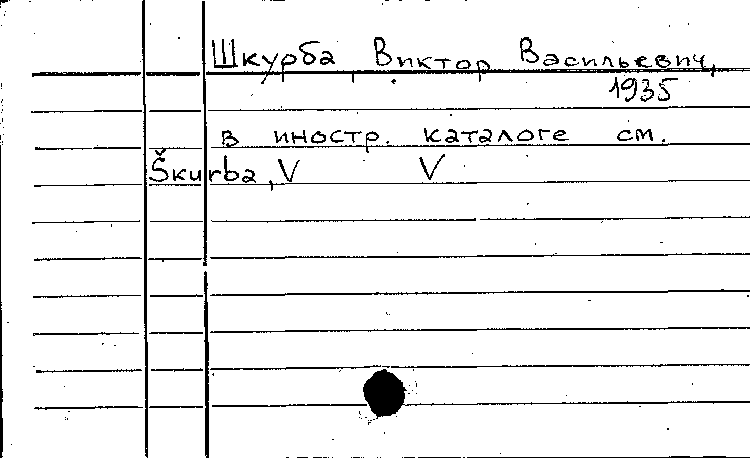 Шкурба, Виктор Васильевич,
1935
в иностр. каталоге см.
Škurba, V V